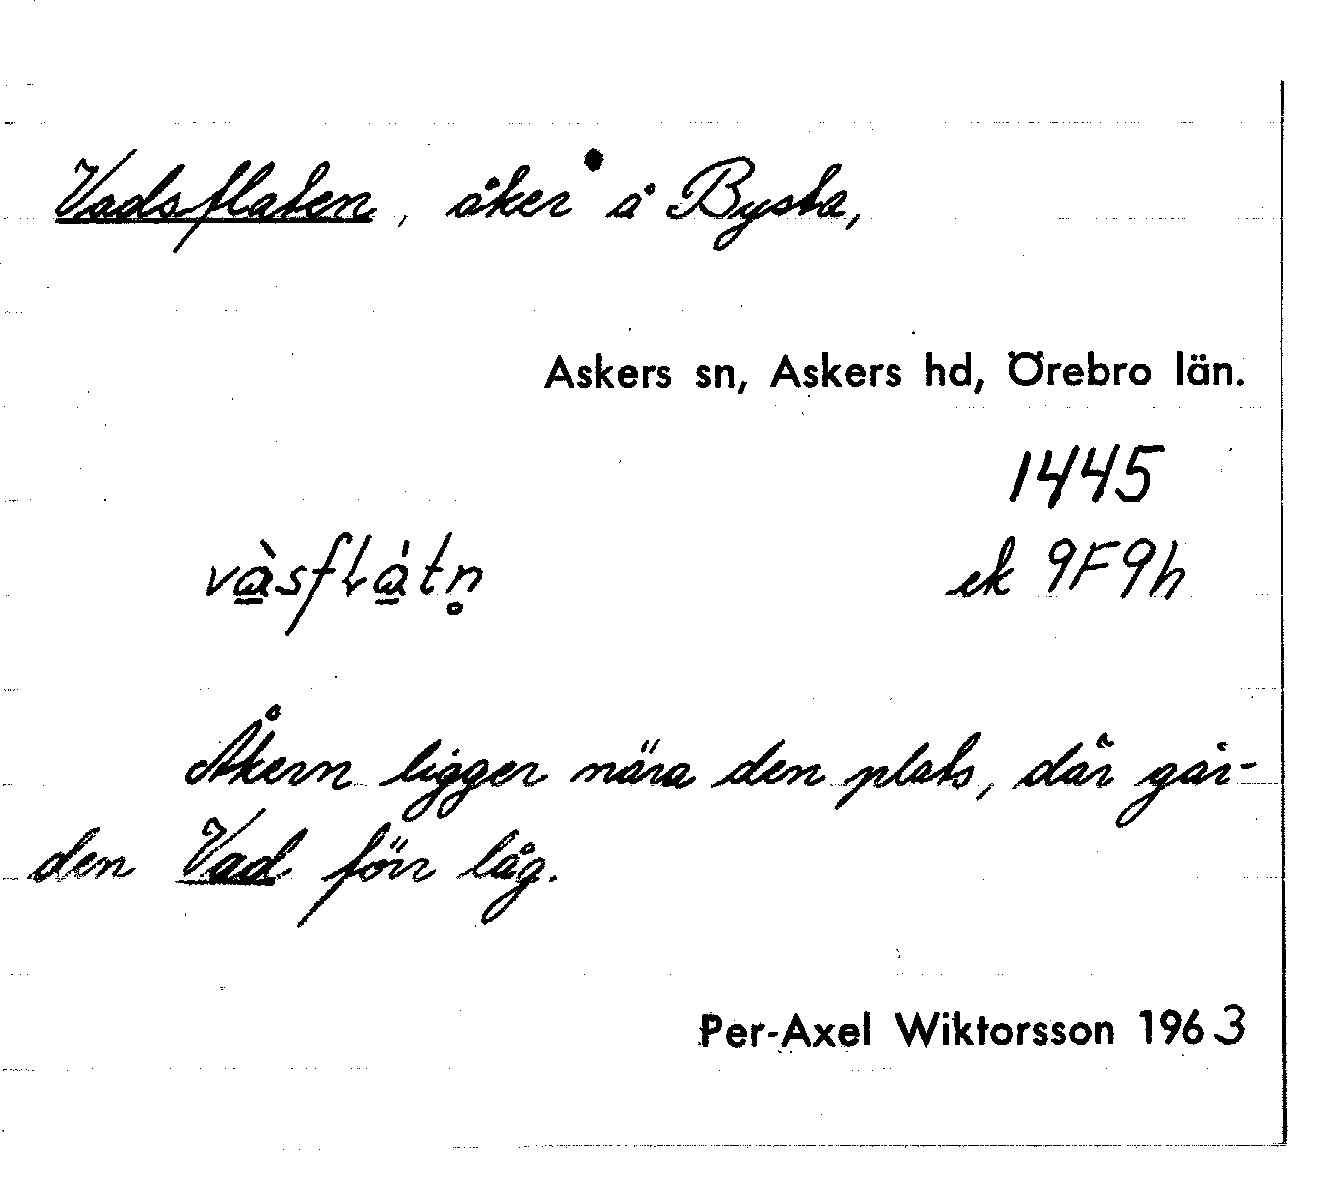 Vadsflaten, åker å Bysta,
Askers sn, Askers hd, Örebro län.
1445
vàsflátn̥ ek 9F9h
Åkern ligger nära den plats, där går-
den Vad förr låg.
Per-Axel Wiktorsson 1963